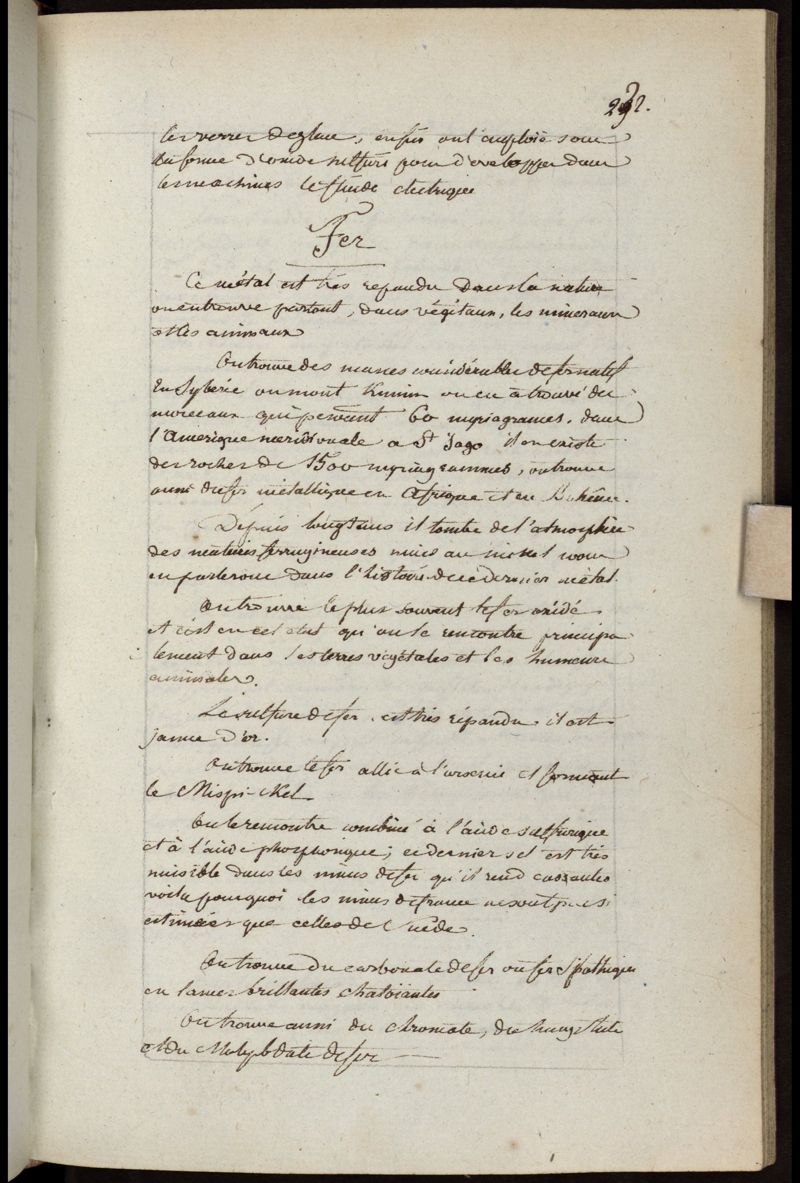 232.
les verres de glace, enfin on l'emploie sous
la forme d'oxide sulfuré pour d'evelopper dans
les machines le fluide électrique
Fer
Ce métal est très repandu dans la nature
on en trouve partout, dans végétaux, les mineraux
et les animaux
On trouve des masses considérables de fer natif
En Syberie au mont on en a trouvé des
morceaux qui pesaient 60 myriagrames. dans
l'Amerique meridionale a St Jago il en existe
des roches de 1500 myriagrammes, on trouve
aussi du fer métallique en Afrique et en Bohême.
Depuis longtems il tombe de l'atmosphère
des matières ferrugineuses mais au nickel nous
en parlerons dans l'histoire de ce dernier métal.
On trouve le plus souvent le fer oxidé
et c'est en cet etat qu'on le rencontre principa
lement dans les terres végétales et les humeurs
animales.
Le sulfure de fer est très répandu il est
jaune d'or.
On trouve le fer allié à l'arsenic et formant
le Mispi-ckel
On le rencontre combiné à l'acide sulfurique
et à l'acide phosphorique; ce dernier sel est très
nuisible dans les mines de fer qu'il rend cassantes
voila pourquoi les mines de france ne sont pas si
estimées que celles de Suède.
On trouve du carbonate de fer ou fer spathique
en lames brillantes chatoiantes
On trouve aussi du chromate, du tungstate
et du Molybdate de fer